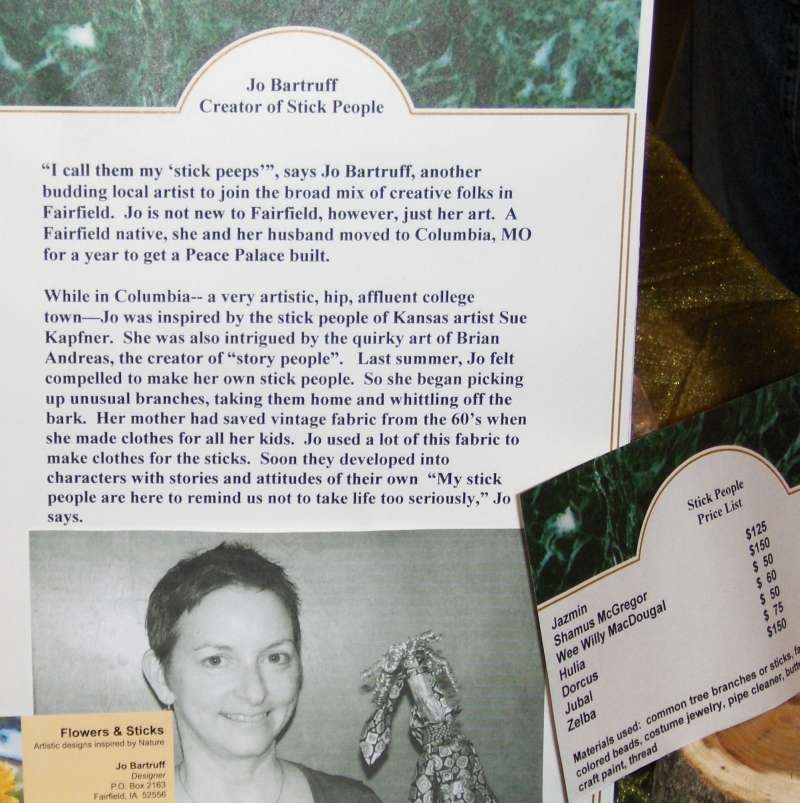 Jo Bartruff
Creator of Stick People
“I call them my ‘stick peeps’”, says Jo Bartruff, another
budding local artist to join the broad mix of creative folks in
Fairfield.  Jo is not new to Fairfield, however, just her art.  A
Fairfield native, she and her husband moved to Columbia, MO
for a year to get a Peace Palace built.
While in Columbia-- a very artistic, hip, affluent college
town—Jo was inspired by the stick people of Kansas artist Sue
Kapfner.  She was also intrigued by the quirky art of Brian
Andreas, the creator of “story people”.   Last summer, Jo felt
compelled to make her own stick people.  So she began picking
up unusual branches, taking them home and whittling off the
bark.  Her mother had saved vintage fabric from the 60’s when
she made clothes for all her kids.  Jo used a lot of this fabric to
make clothes for the sticks.  Soon they developed into
characters with stories and attitudes of their own  “My stick
people are here to remind us not to take life too seriously,” Jo
says.
Flowers & Sticks
Artistic designs inspired by Nature
Jo Bartruff
Designer
P.O. Box 2163
Fairfield, IA  52556
Stick People
Price List
Jazmin $125
Shamus McGregor $150
Wee Willy MacDougal $ 50
Hulia $ 60
Dorcus $ 50
Jubal $ 75
Zelba $150
Materials used:  common tree branches or sticks,
colored beads, costume jewelry, pipe cleaner,
craft paint, thread